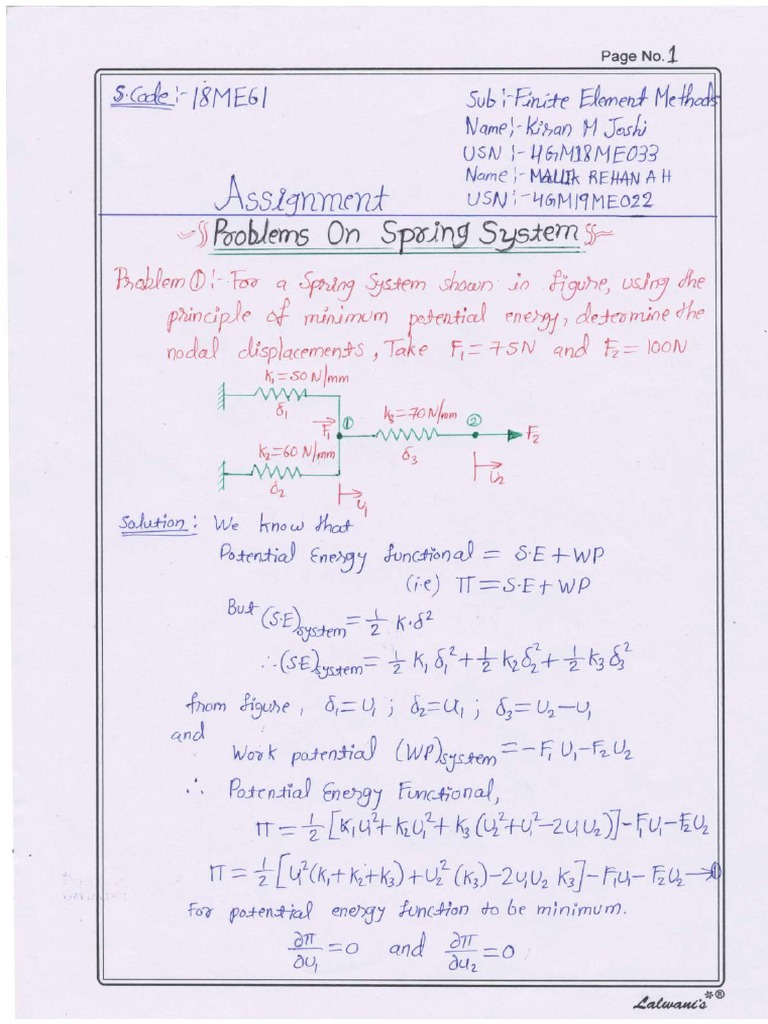 Page No. 1
S.Code:- 18ME61
Sub:- Finite Element Methods
Name:- Kiran M Joshi
USN:- 4GM18ME033
Name:- MALLIK REHAN A H
USN:- 4GM19ME022
Assignment
Problems On Spring System
Problem ①:- For a Spring System shown in figure, using the
principle of minimum potential energy, determine the
nodal displacements, Take F₁ = 75N and F₂ = 100N
K₁=50 N/mm
δ₁
F₁
①
K₃=70N/mm
②
F₂
K₂=60 N/mm
δ₃
δ₂
U₁
U₂
Solution: We know that
Potential Energy functional = S.E + WP
(i.e) π = S.E + WP
But (S.E)system = 1/2 K.δ²
∴ (S.E)system = 1/2 K₁δ₁² + 1/2 K₂δ₂² + 1/2 K₃δ₃²
from figure, δ₁=U₁ ; δ₂=U₁ ; δ₃=U₂-U₁
and
Work potential (WP)system = -F₁U₁-F₂U₂
∴ Potential Energy Functional,
π = 1/2 [K₁U₁² + K₂U₁² + K₃(U₂²+U₁²-2U₁U₂)] - F₁U₁ - F₂U₂
π = 1/2 [U₁²(K₁+K₂+K₃) + U₂²(K₃) - 2U₁U₂ K₃] - F₁U₁ - F₂U₂ → ①
For potential energy function to be minimum.
∂π/∂U₁ = 0 and ∂π/∂U₂ = 0
Lalwani's ®